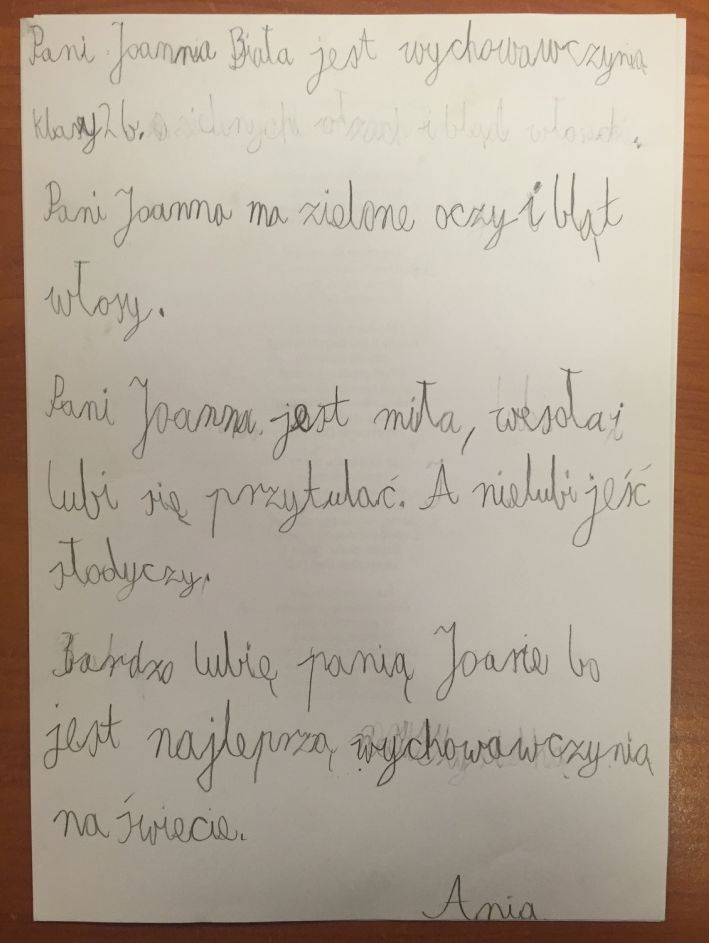 Pani Joanna Biała jest wychowawczynią
klasy 2 b.
Pani Joanna ma zielone oczy i bląt
włosy.
Pani Joanna jest miła, wesoła i
lubi się przytulać. A nielubi jeść
słodyczy.
Bardzo lubię panią Joasie bo
jest najleprzą wychowawczynią
na świecie.
Ania